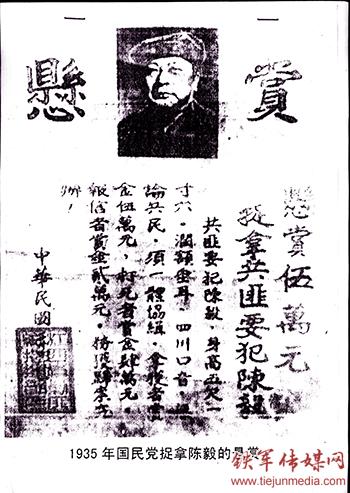 懸賞
懸賞伍萬元
捉拿共匪要犯陳毅
共匪要犯陳毅，身高五尺一
寸六，濶額
四川口音
論共民，須一體協緝，
金伍萬元，打死者賞金肆萬元。
報信者賞金貳萬元。
辦！
中華民國
1935年国民党捉拿陈毅的悬赏
铁军传媒网
www.tiejunmedia.com